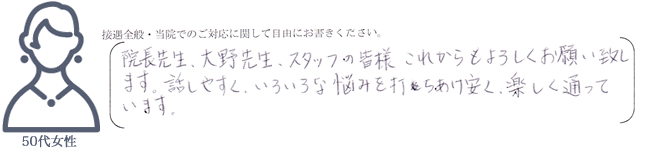 接遇全般・当院でのご対応に関して自由にお書きください。
院長先生、大野先生、スタッフの皆様 これからもよろしくお願い致し
ます。話しやすく、いろいろな悩みを打ちあけ安く、楽しく通って
います。
50代女性